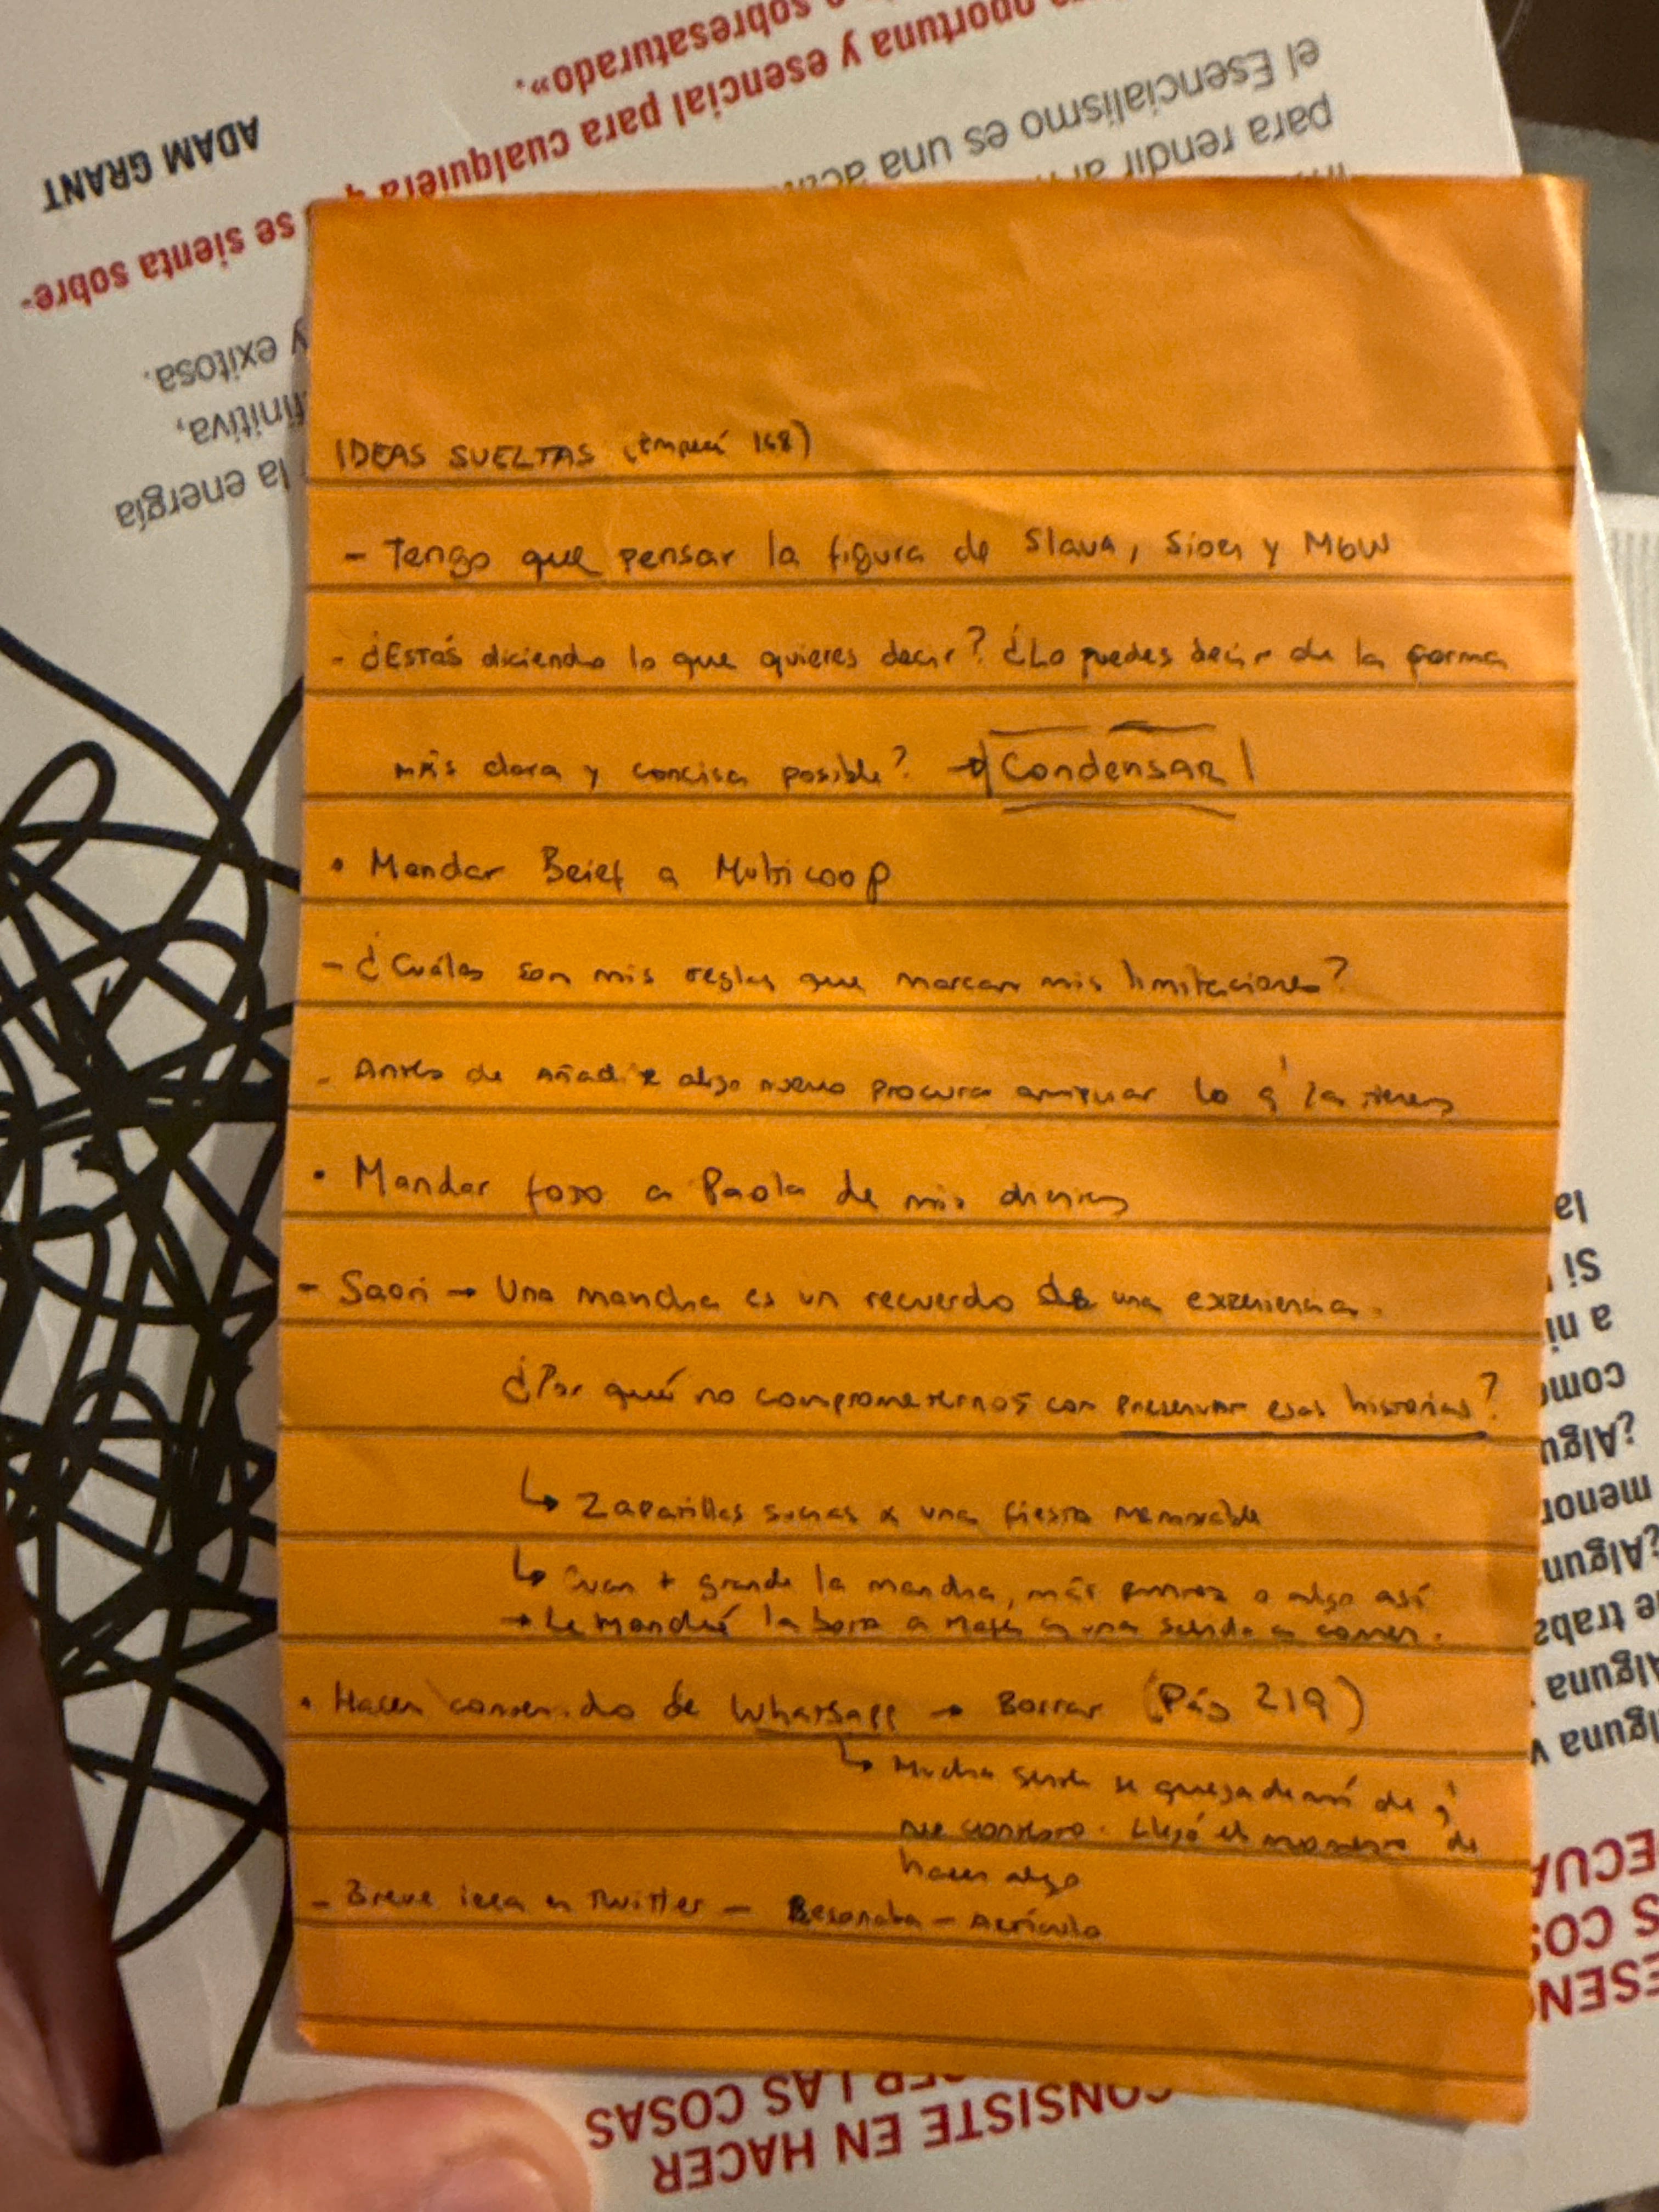 ADAM GRANT
se sienta sobre-
oportuna y esencial para cualquiera
sobresaturado».
el Esencialismo es una
para rendir al
y exitosa.
la energía
IDEAS SUELTAS (Empecé 168)
- Tengo que pensar la figura de Slava, y MGW
- ¿Estás diciendo lo que quieres decir? ¿Lo puedes decir de la forma
más clara y concisa posible? → Condensar
• Mandar Brief a Multicoop
- ¿Cuáles son mis reglas que marcan mis limitaciones?
- Antes de añadir algo nuevo procura lo q' ya tienes
• Mandar foto a Paola de mis
- Saori → Una mancha es un recuerdo de una experiencia.
¿Por qué no comprometernos con preservar esas historias?
↳ Zapatillas sucias x una fiesta memorable
↳ Cuan + grande la mancha, más o algo así
→ Le manché la a en una salida a comer.
• Hacer contenido de Whatsapp → Borrar (Pág 219)
↳ Mucha gente se queja de mí de q'
no contesto. Llegó el momento de
hacer algo
- Breve idea en Twitter - Resonaba - Artículo
la
Si
a ni
come
¿Algu
menor
¿Algun
e traba
Alguna
lguna v
ECUA
S COS
ESEN
CONSISTE EN HACER
LAS COSAS